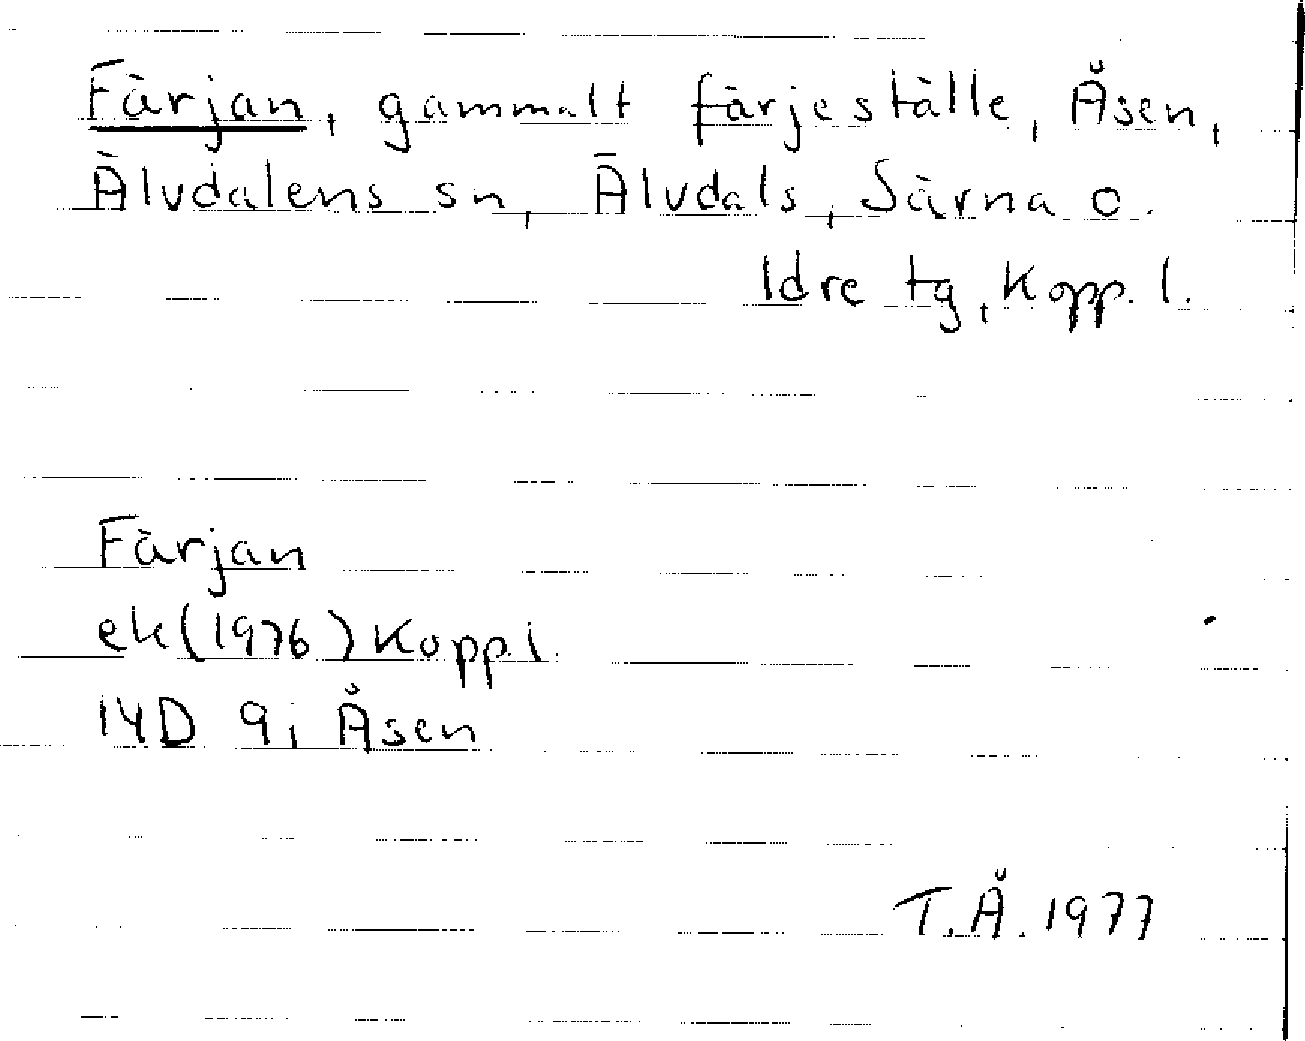 Färjan, gammalt färjeställe, Åsen,
Älvdalens sn, Älvdals, Särna o.
Idre tg, Kopp. l.
Färjan
ek (1976) Kopp.l.
14D 9i Åsen
T.Å. 1977